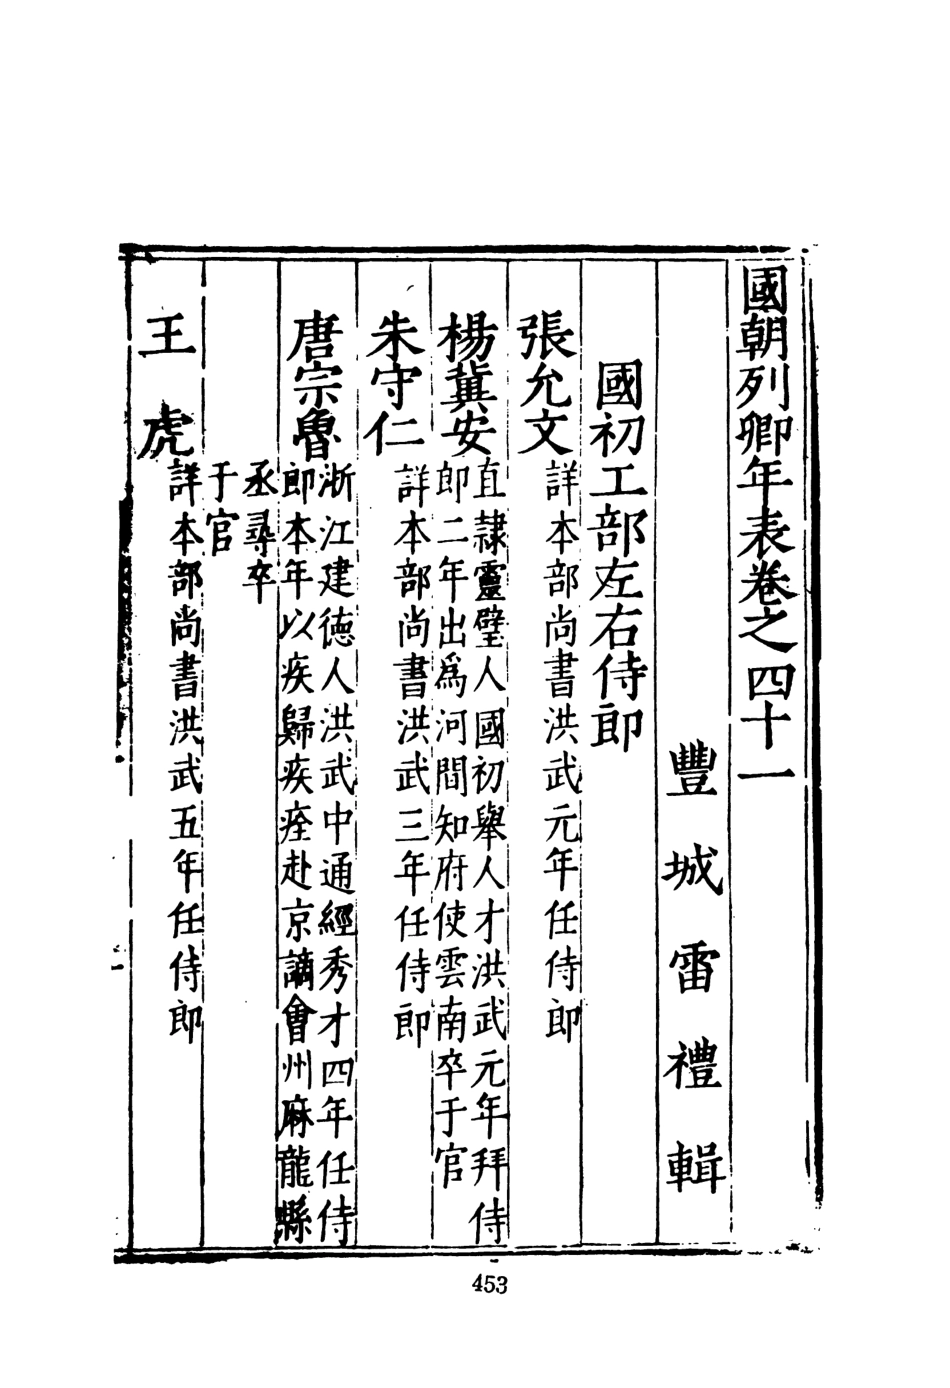 國朝列卿年表卷之四十一
豐城雷禮輯
國初工部左右侍郎
張允文
詳本部尚書洪武元年任侍郎
楊冀安
直隷靈璧人國初舉人才洪武元年拜侍
郎二年出爲河間知府使雲南卒于官
朱守仁
詳本部尚書洪武三年任侍郎
唐宗魯
浙江建德人洪武中通經秀才四年任侍
郎本年以疾歸疾痊赴京謫會州麻龍縣
丞尋卒
于官
王虎
詳本部尚書洪武五年任侍郎
453